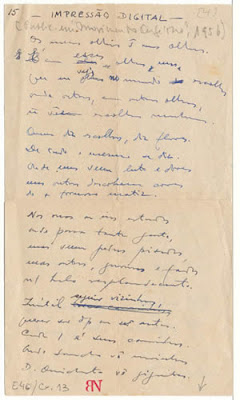 15 — IMPRESSÃO DIGITAL —
1956)
Os meus olhos são uns olhos.
E é com esses olhos uns
que eu vejo no mundo escolhos
onde outros, com outros olhos,
não vêem escolhos nenhuns.
Quem diz escolhos, diz flores.
De tudo o mesmo se diz.
Onde uns vêem luto e dores
uns outros descobrem cores
do formoso matiz.
Nas ruas ou nas estradas
onde passa tanta gente,
uns vêem pedras pisadas,
mas outros, gnomos e fadas
num halo resplandecente.
Inútil seguir vizinhos,
querer ser depois ou ser antes.
Cada um é seus caminhos.
Onde Sancho vê moinhos
D. Quichote vê gigantes.
E46/Cx. 13
BN